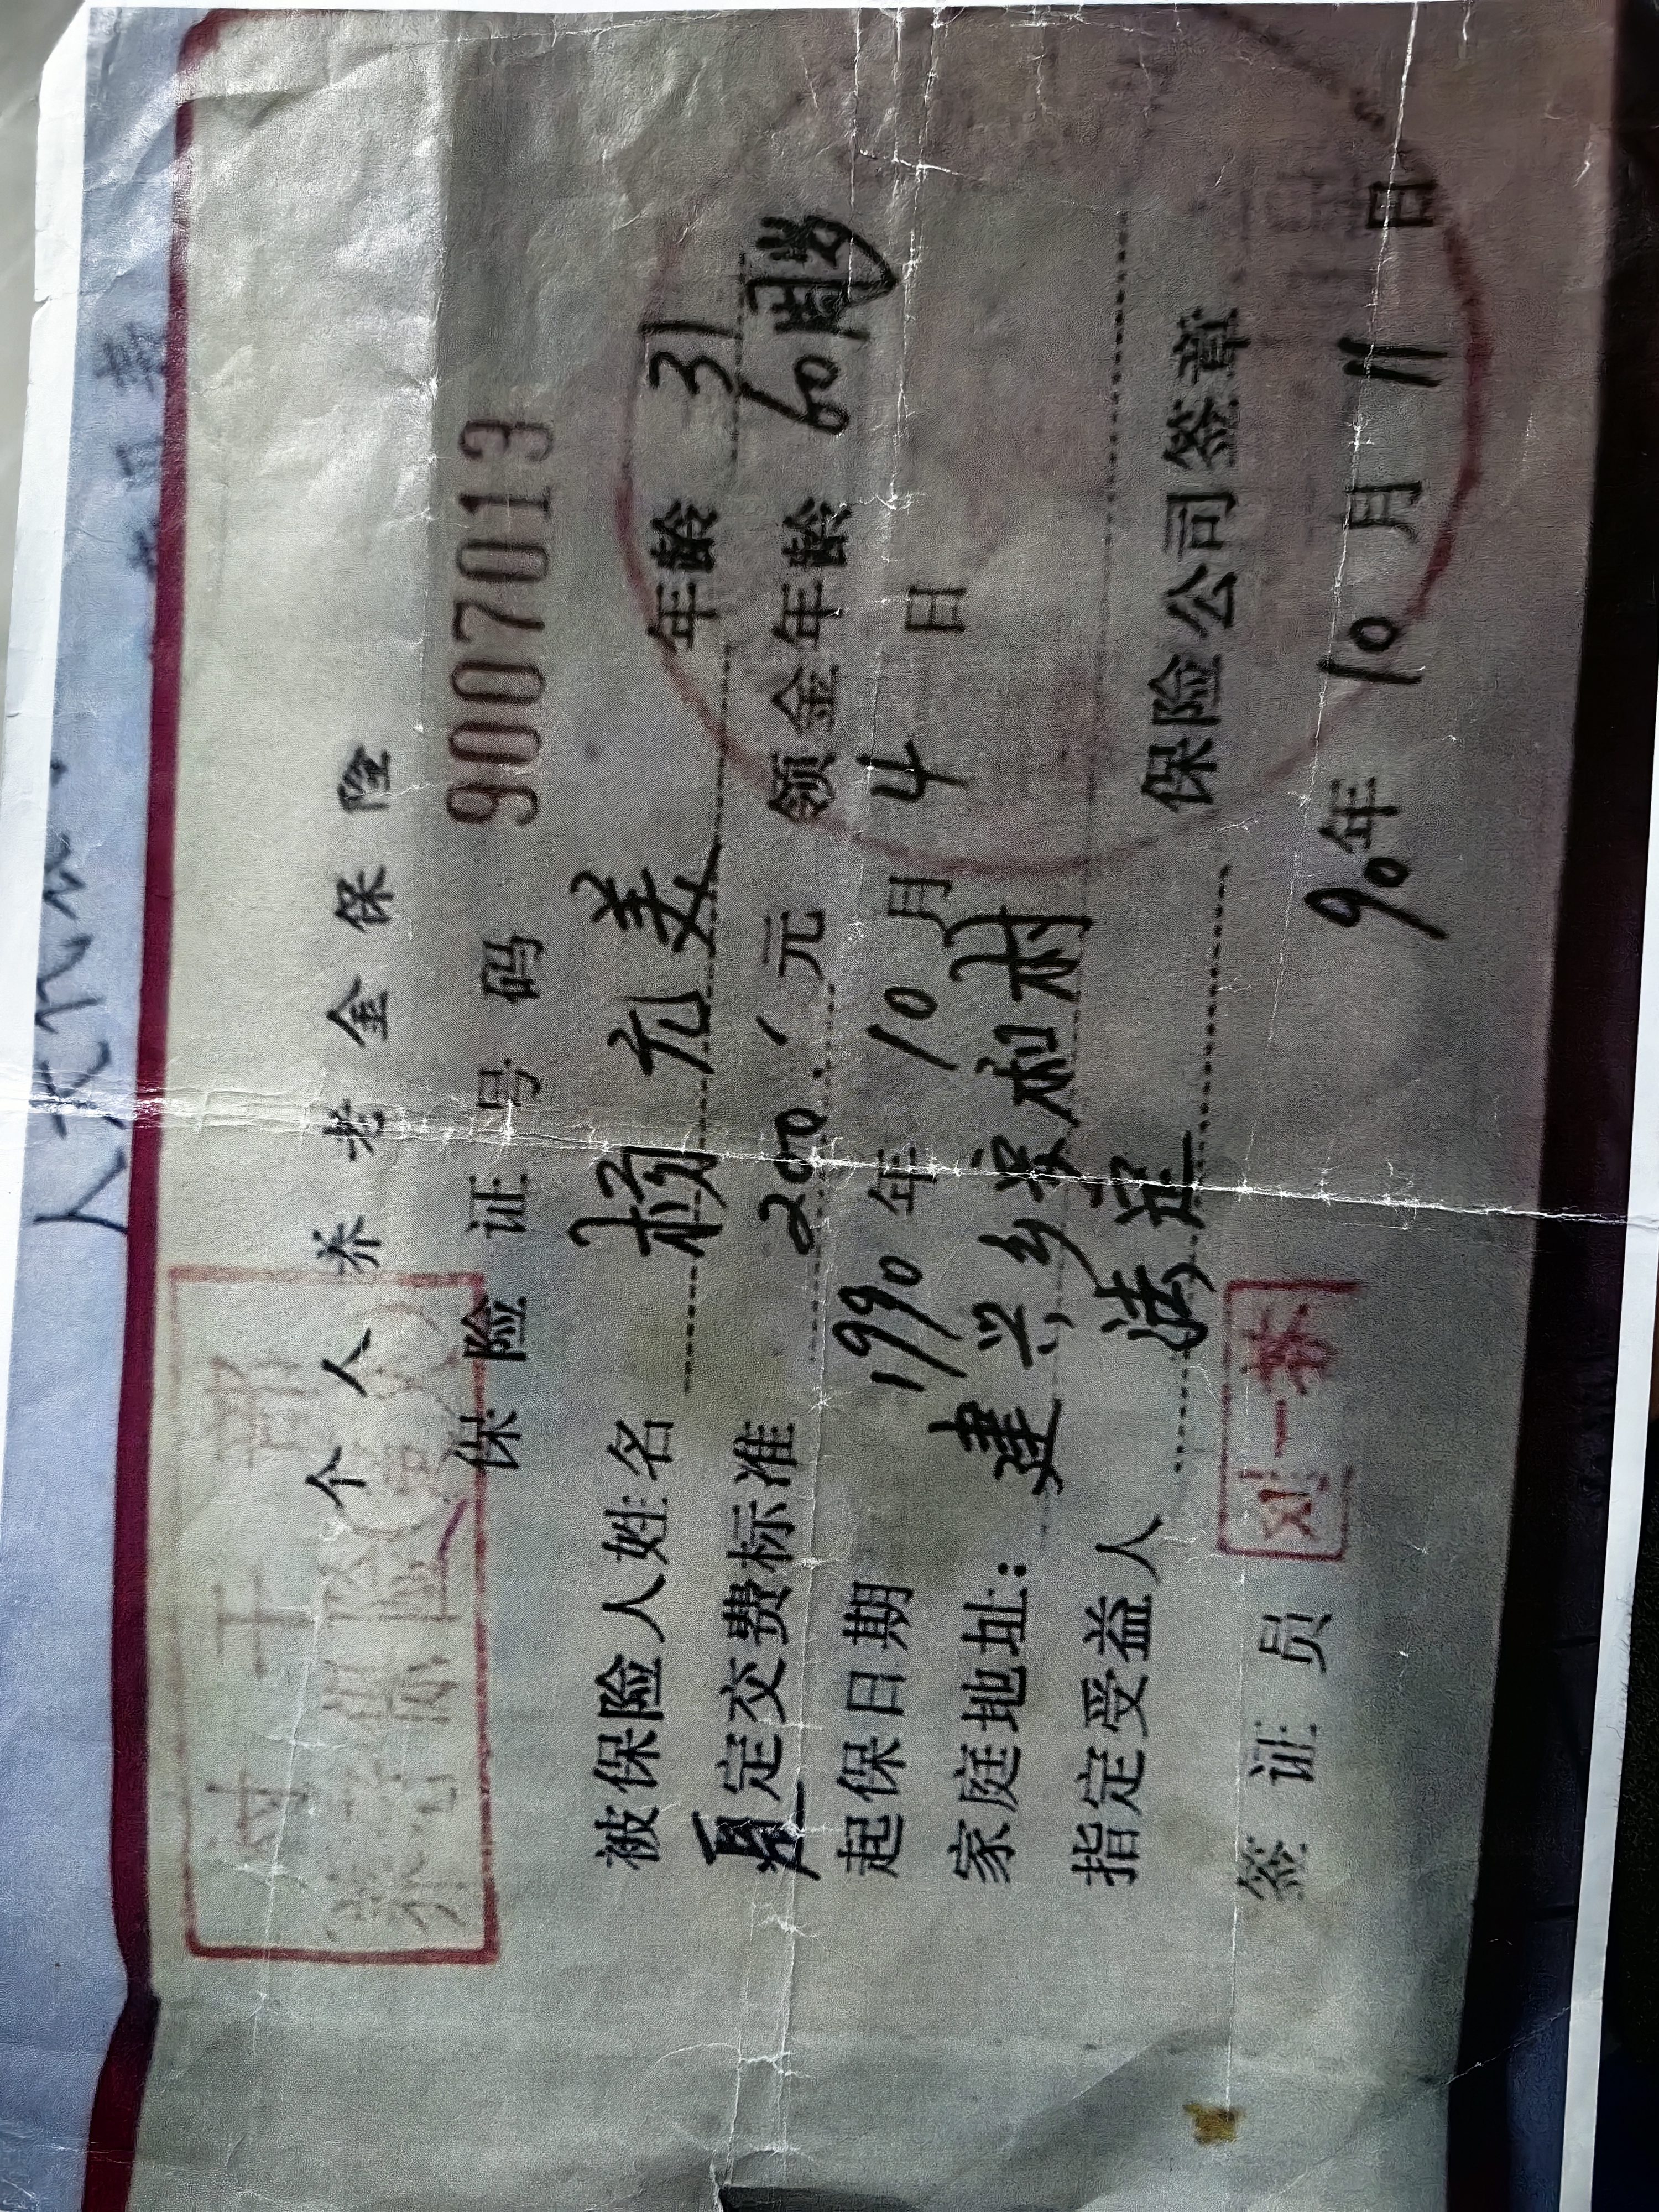 人大代
村干部
养老保险
个人养老金保险
保险证号码 9007013
被保险人姓名 赖元美 年龄 31
定交费标准 200.元 领金年龄 60周岁
起保日期 1990年10月4日
家庭地址：建兴乡兴和村
指定受益人 法定
签证员 刘一苏 保险公司签章
90年10月11日